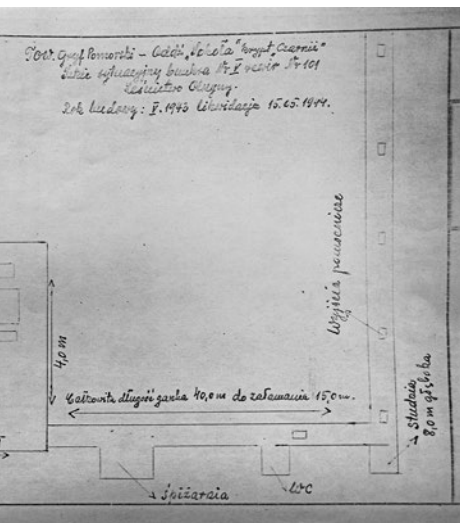 TOW. Gryf Pomorski - Oddz. „Szkoła" krypt. „Czarnii"
Szkic sytuacyjny bunkra Nr V rewir Nr 101
Leśnictwo
Rok budowy: V. 1943 likwidacja 15.05.1944.
Wyjścia pomocnicze
4,0 m
Całkowita długość ganka 40,0 m do załamania 15,0 m.
Studnia
8,0 m głęboka
śpiżarnia
WC